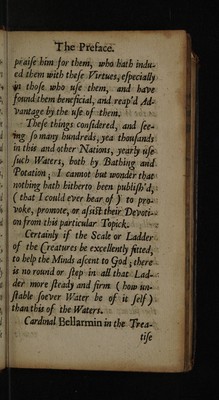 The Preface.
praise him for them, who hath indu-
ed them with these Virtues, especially
in those who use them, and have
found them beneficial, and reap'd Ad-
vantage by the use of them.
These things considered, and see-
ing so many hundreds, yea thousands
in this and other Nations, yearly use
such Waters, both by Bathing and
Potation; I cannot but wonder that
nothing hath hitherto been publish'd,
(that I could ever hear of) to pro-
voke, promote, or assist their Devoti-
on from this particular Topick.
Certainly if the Scale or Ladder
of the Creatures be excellently fitted,
to help the Minds ascent to God; there
is no round or step in all that Lad-
der more steady and firm (how un-
stable soever Water be of it self)
than this of the Waters.
Cardinal Bellarmin in the Trea-
tise